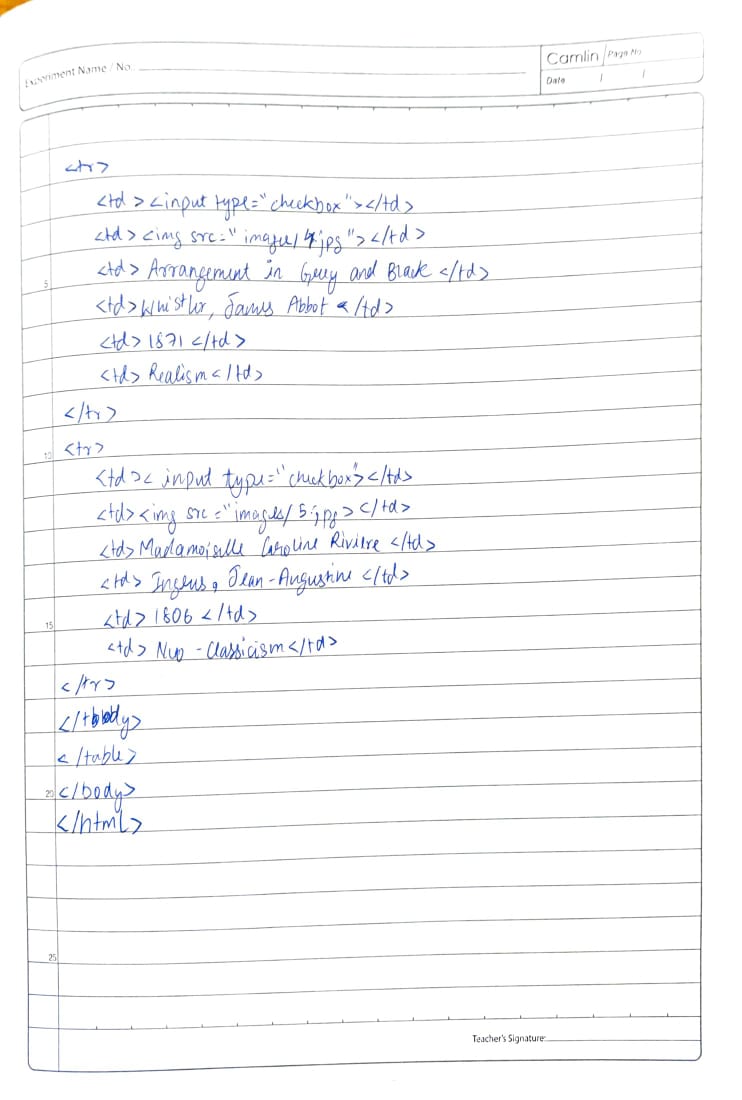 Experiment Name / No.
Camlin Page No
Date / /
<tr>
<td><input type="checkbox"></td>
<td><img src="images/4.jpg"></td>
5 <td> Arrangement in Grey and Black </td>
<td> Whistler, James Abbot </td>
<td> 1871 </td>
<td> Realism </td>
</tr>
10 <tr>
<td>< input type="checkbox"></td>
<td><img src="images/5.jpg></td>
<td> Madamoiselle Caroline Riviere </td>
<td> Ingeus, Jean-Augustine </td>
15 <td> 1806 </td>
<td> Neo-Classicism </td>
</tr>
</tbody>
</table>
20 </body>
</html>
25
Teacher's Signature: